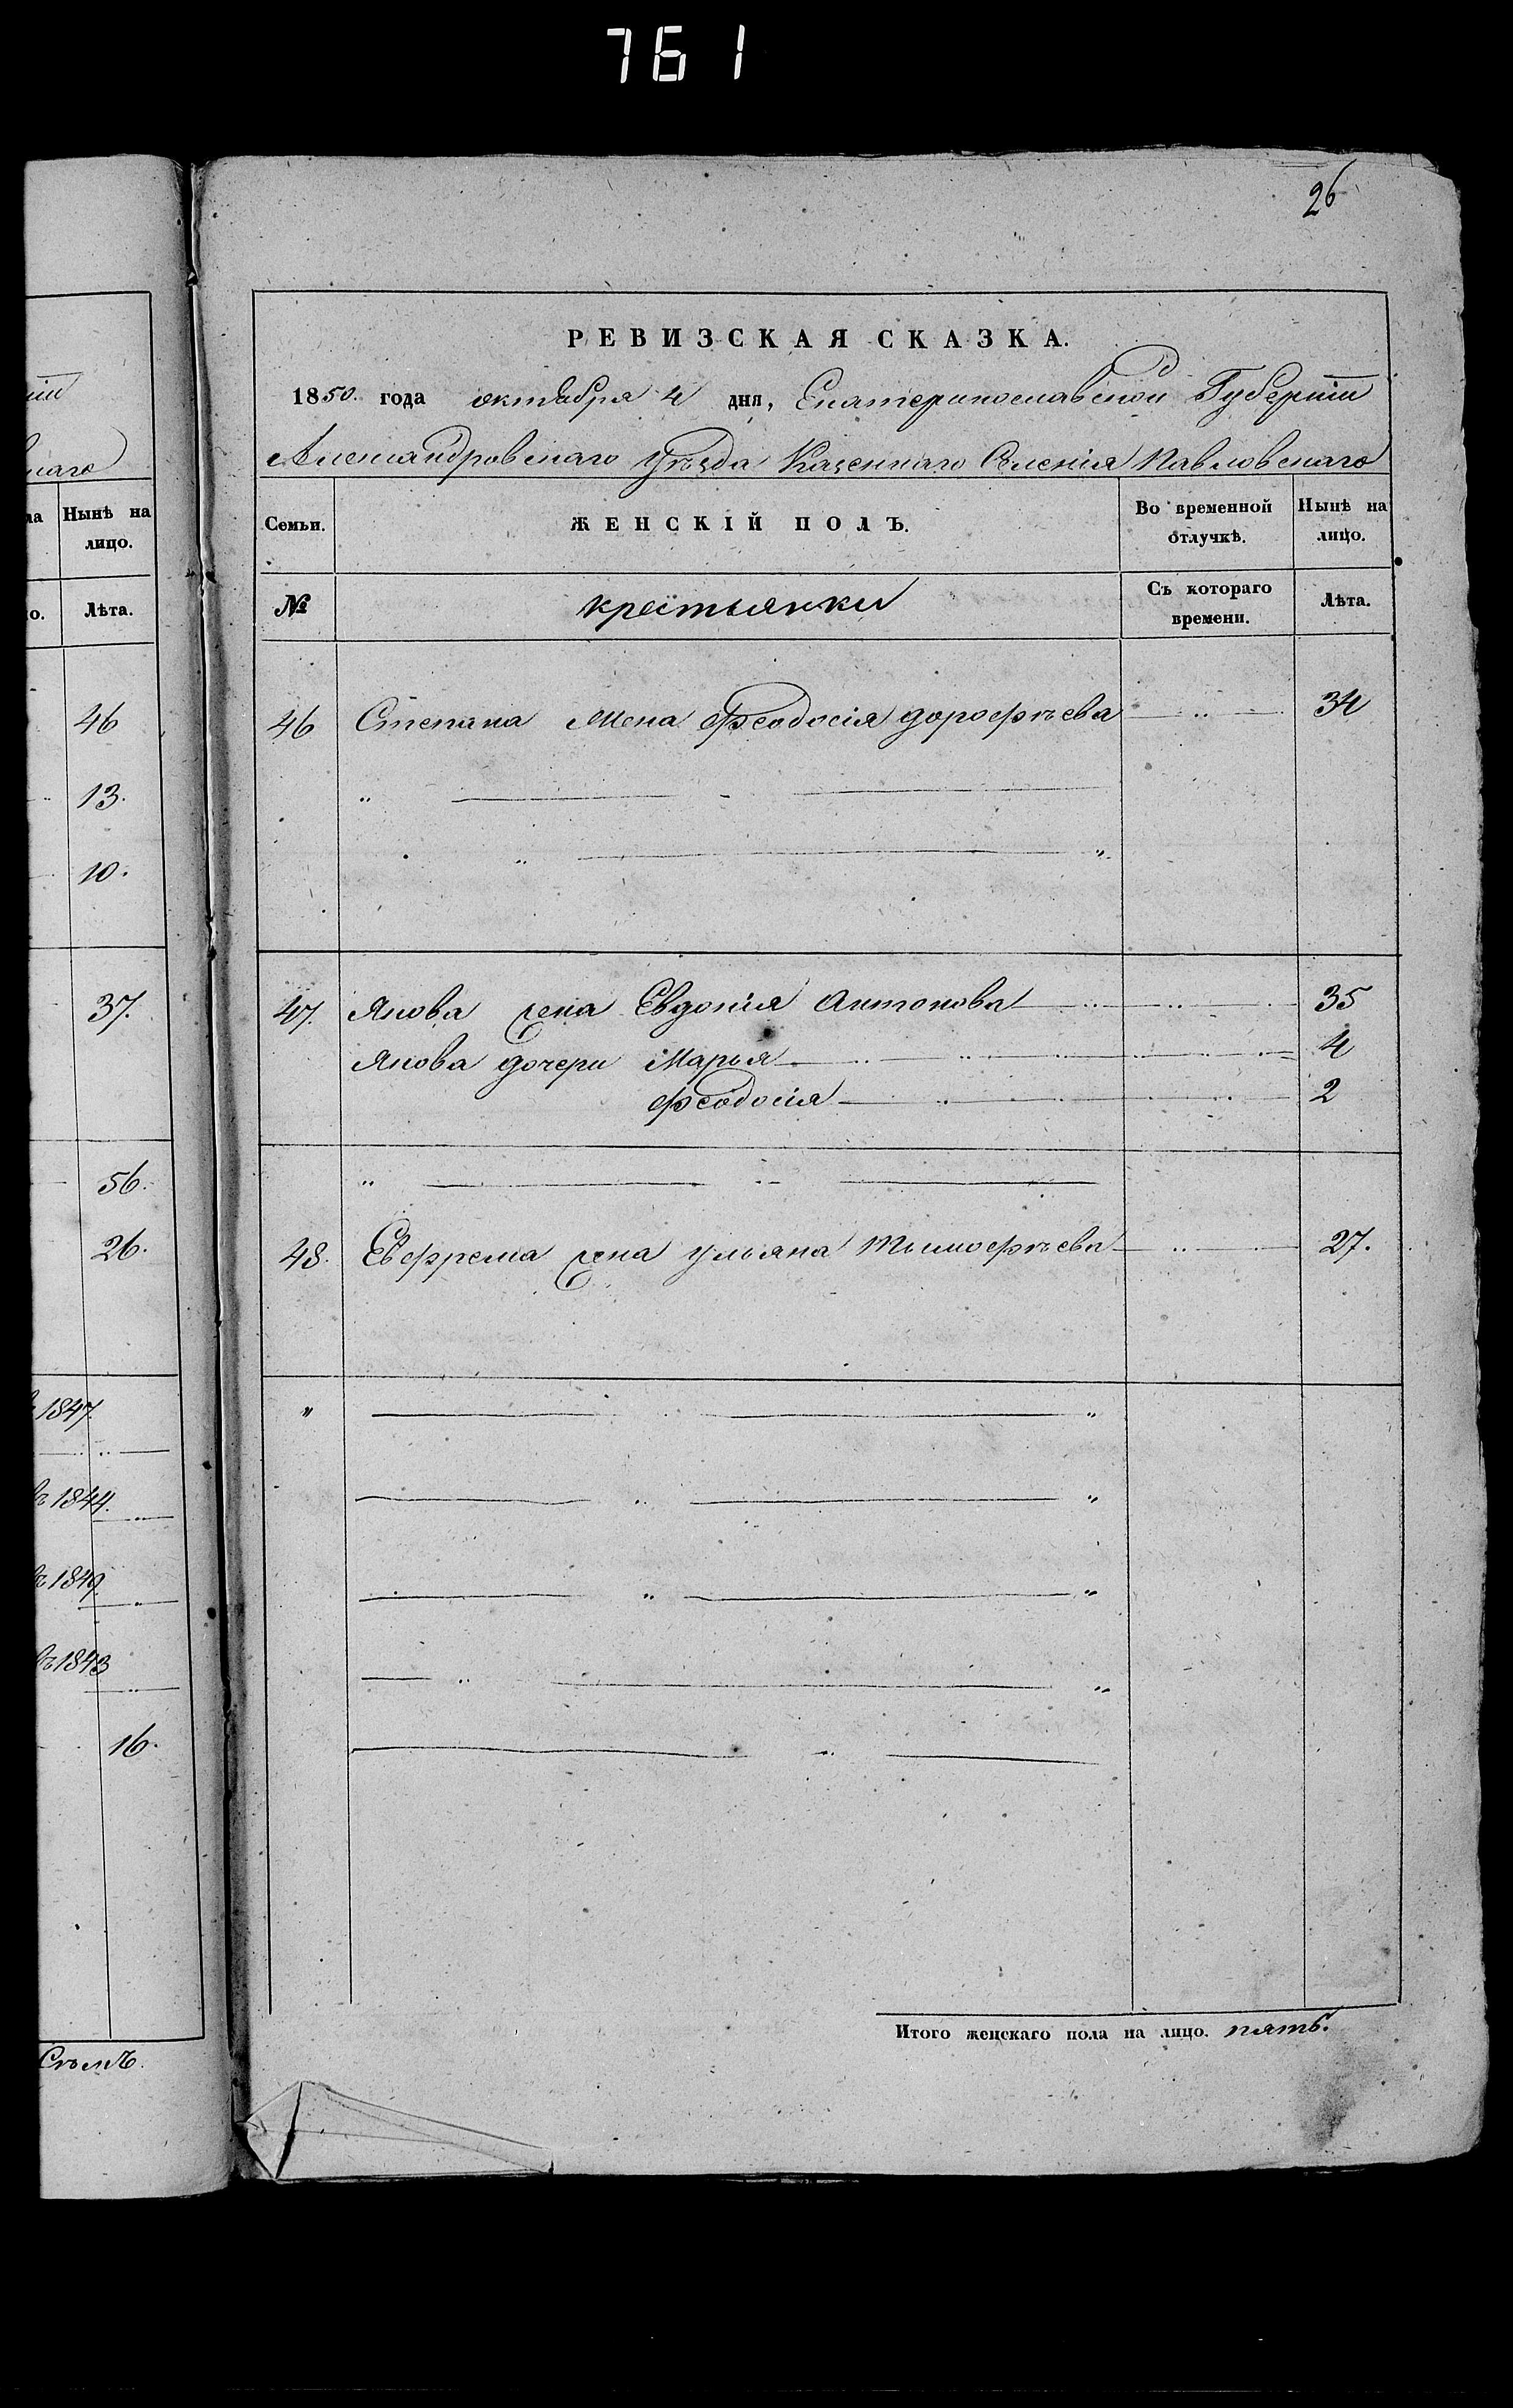 761
26
РЕВИЗСКАЯ СКАЗКА.
1850. года октября 4 дня, Екатеринославской Губернии
Александровскаго уѣзда Казеннаго Селенія Павловскаго
наго
ла Нынѣ на лицо.
о. Лѣта.
46
13.
10.
37.
56.
26.
1847.
въ 1844.
въ 1849.
въ 1843
16.
Семь.
Семьи. ЖЕНСКІЙ ПОЛЪ. Во временной отлучкѣ. Нынѣ на лицо.
№ крестьянки Съ котораго времени. Лѣта.
46 Степана Жена Феодосія дорофѣева 34
47. Якова жена Евдокія Антонова 35
Якова дочери Марья 4
Феодосія 2
48. Евфрема жена ульяна Тимофѣева 27.
Итого женскаго пола на лицо. пять.